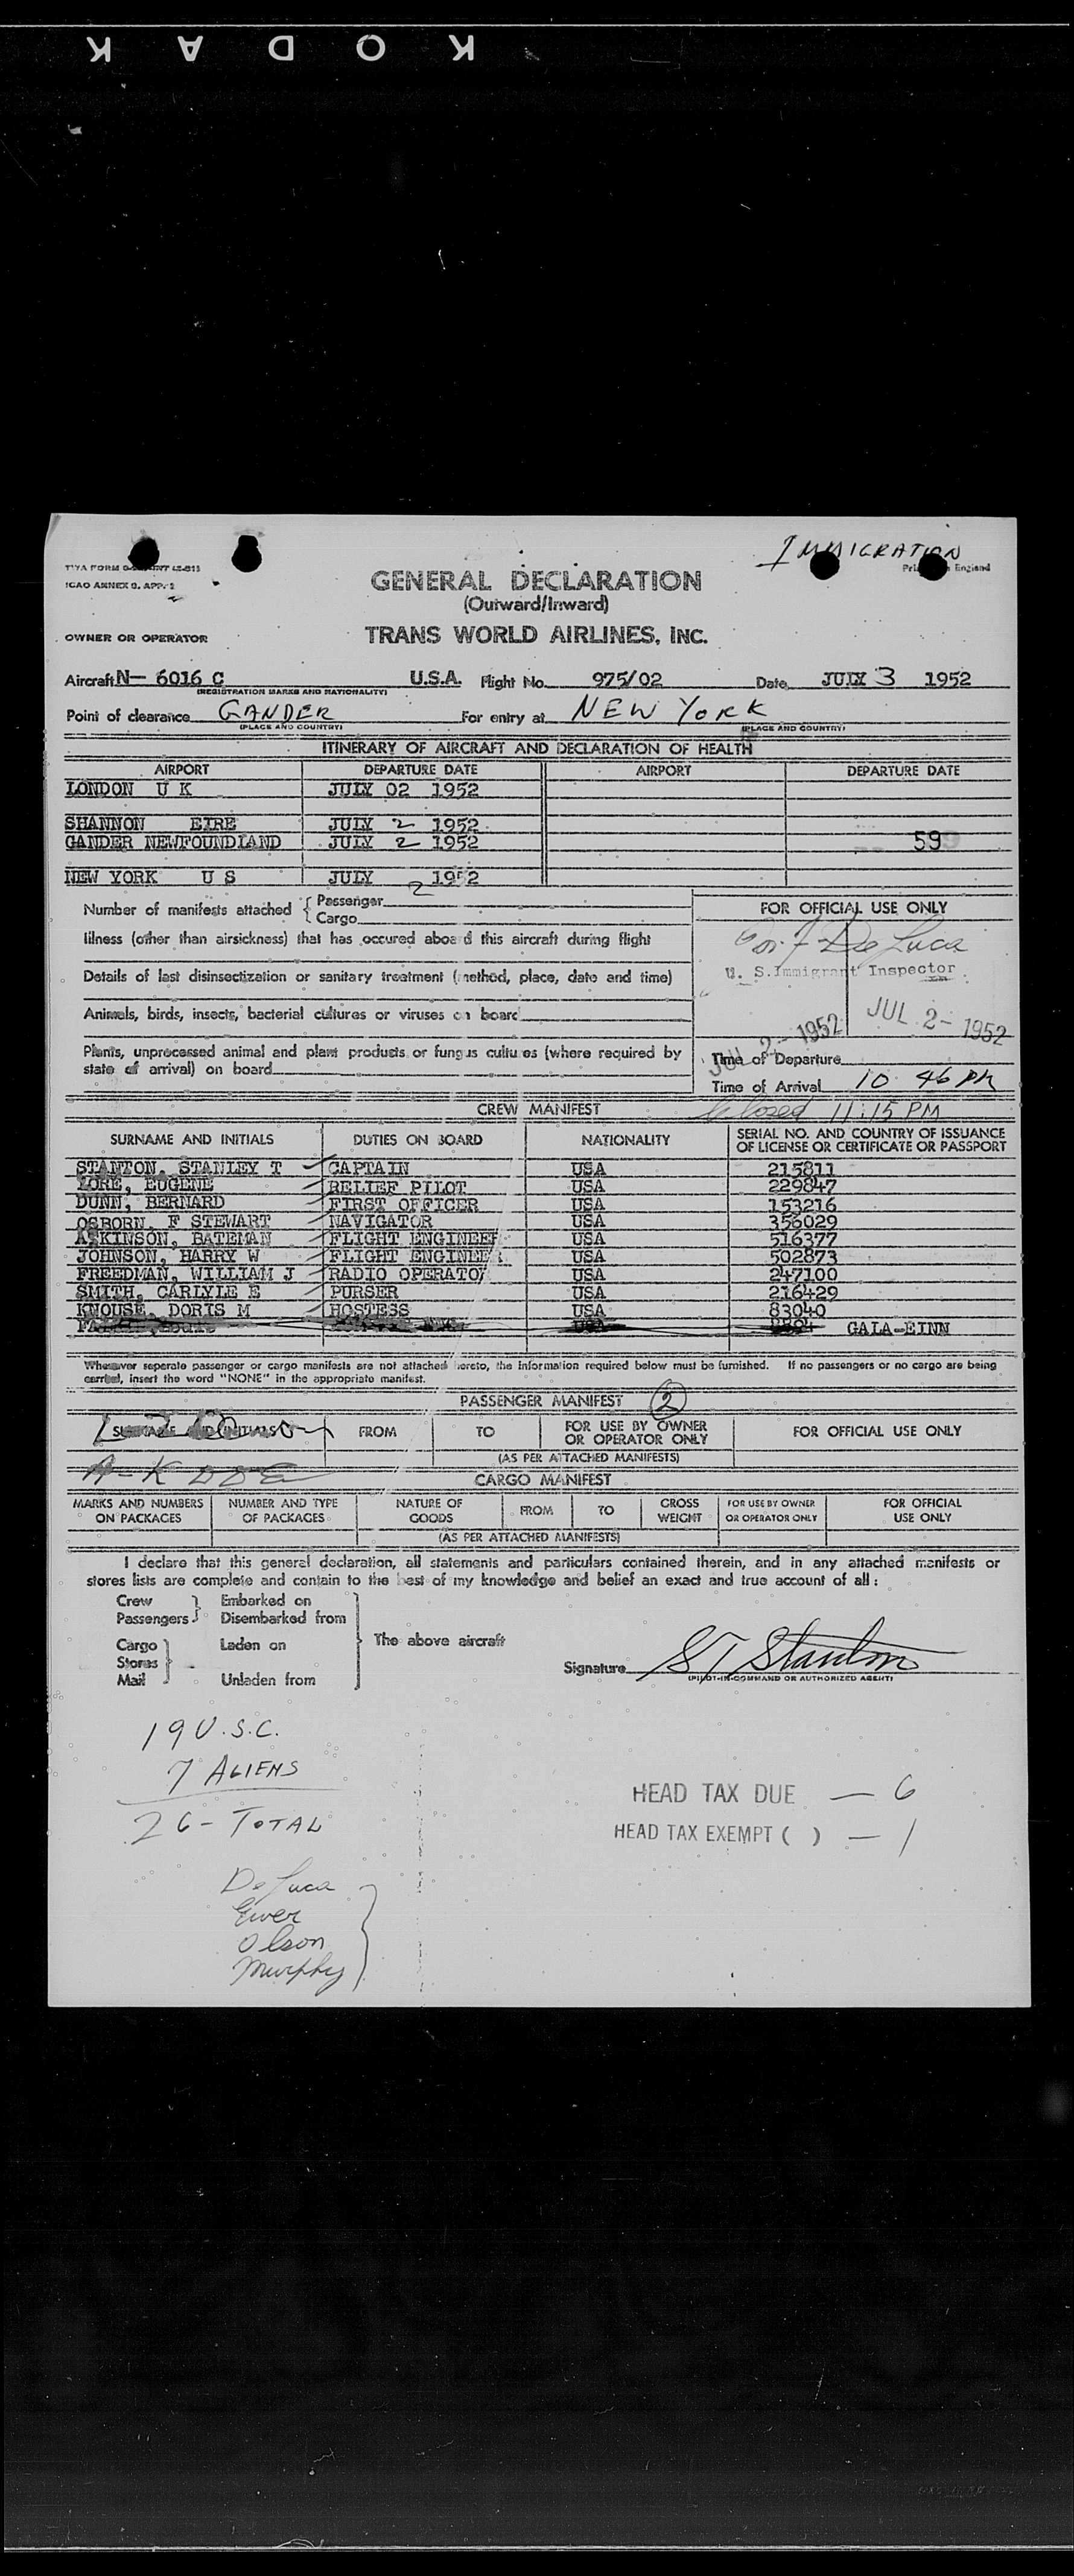 KODAK
IMMIGRATION
ICAO ANNEX 9. APP. 2
England
GENERAL DECLARATION
(Outward/Inward)
OWNER OR OPERATOR
TRANS WORLD AIRLINES, INC.
Aircraft N- 6016 C U.S.A. Flight No. 975/02 Date JULY 3 1952
(REGISTRATION MARKS AND NATIONALITY)
Point of clearance GANDER For entry at NEW YORK
(PLACE AND COUNTRY) (PLACE AND COUNTRY)
ITINERARY OF AIRCRAFT AND DECLARATION OF HEALTH
AIRPORT DEPARTURE DATE AIRPORT DEPARTURE DATE
LONDON U K JULY 02 1952
SHANNON EIRE JULY 2 1952
GANDER NEWFOUNDLAND JULY 2 1952 59
NEW YORK U S JULY 2 1952
Number of manifests attached { Passenger
Cargo
FOR OFFICIAL USE ONLY
Illness (other than airsickness) that has occured aboard this aircraft during flight
De Luca
U. S. Immigrant Inspector
Details of last disinsectization or sanitary treatment (method, place, date and time)
Animals, birds, insects, bacterial cultures or viruses on board
JUL 2- 1952 JUL 2- 1952
Plants, unprocessed animal and plant products or fungus cultures (where required by
state of arrival) on board
Time of Departure
Time of Arrival 10 46 PM
Closed 11:15 PM
CREW MANIFEST
SURNAME AND INITIALS DUTIES ON BOARD NATIONALITY SERIAL NO. AND COUNTRY OF ISSUANCE
OF LICENSE OR CERTIFICATE OR PASSPORT
STANTON, STANLEY T CAPTAIN USA 215811
ZORE, EUGENE RELIEF PILOT USA 229847
DUNN, BERNARD FIRST OFFICER USA 153216
OSBORN, F STEWART NAVIGATOR USA 356029
ATKINSON, BATEMAN FLIGHT ENGINEER USA 516377
JOHNSON, HARRY W FLIGHT ENGINEER USA 502873
FREEDMAN, WILLIAM J RADIO OPERATOR USA 247100
SMITH, CARLYLE E PURSER USA 216429
KNOUSE, DORIS M HOSTESS USA 83040
GALA-EINN
Whenever seperate passenger or cargo manifests are not attached hereto, the information required below must be furnished. If no passengers or no cargo are being
carried, insert the word "NONE" in the appropriate manifest.
PASSENGER MANIFEST 2
SURNAME AND INITIALS FROM TO FOR USE BY OWNER
OR OPERATOR ONLY FOR OFFICIAL USE ONLY
(AS PER ATTACHED MANIFESTS)
CARGO MANIFEST
MARKS AND NUMBERS
ON PACKAGES NUMBER AND TYPE
OF PACKAGES NATURE OF
GOODS FROM TO GROSS
WEIGHT FOR USE BY OWNER
OR OPERATOR ONLY FOR OFFICIAL
USE ONLY
(AS PER ATTACHED MANIFESTS)
I declare that this general declaration, all statements and particulars contained therein, and in any attached manifests or
stores lists are complete and contain to the best of my knowledge and belief an exact and true account of all :
Crew Embarked on
Passengers Disembarked from
Cargo Laden on The above aircraft
Stores
Mail Unladen from
Signature S T Stanton
(PILOT-IN-COMMAND OR AUTHORIZED AGENT)
19 U.S.C.
7 ALIENS
26 - TOTAL
HEAD TAX DUE — 6
HEAD TAX EXEMPT ( ) — 1
De Luca
Ewer
Olson
Murphy